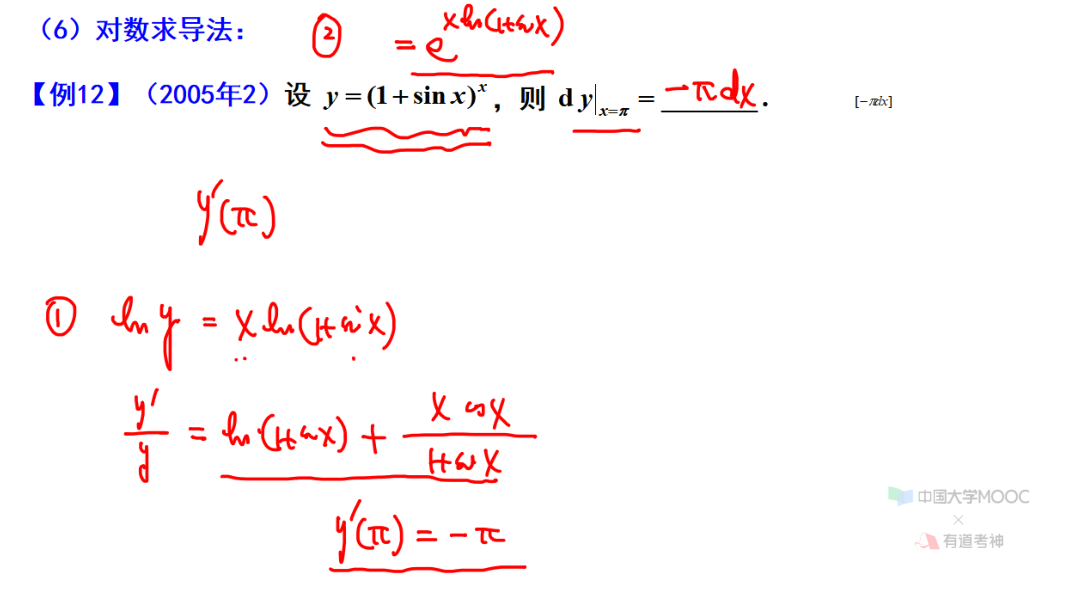 （6）对数求导法：
② = e^{x ln(1+sin x)}
【例12】（2005年2）设 y = (1 + sin x)^x，则 d y|_{x=π} = -π dx . [-πdx]
y'(π)
① ln y = x ln(1+sin x)
y'/y = ln(1+sin x) + x cos x / 1+sin x
y'(π) = -π
中国大学MOOC
×
有道考神